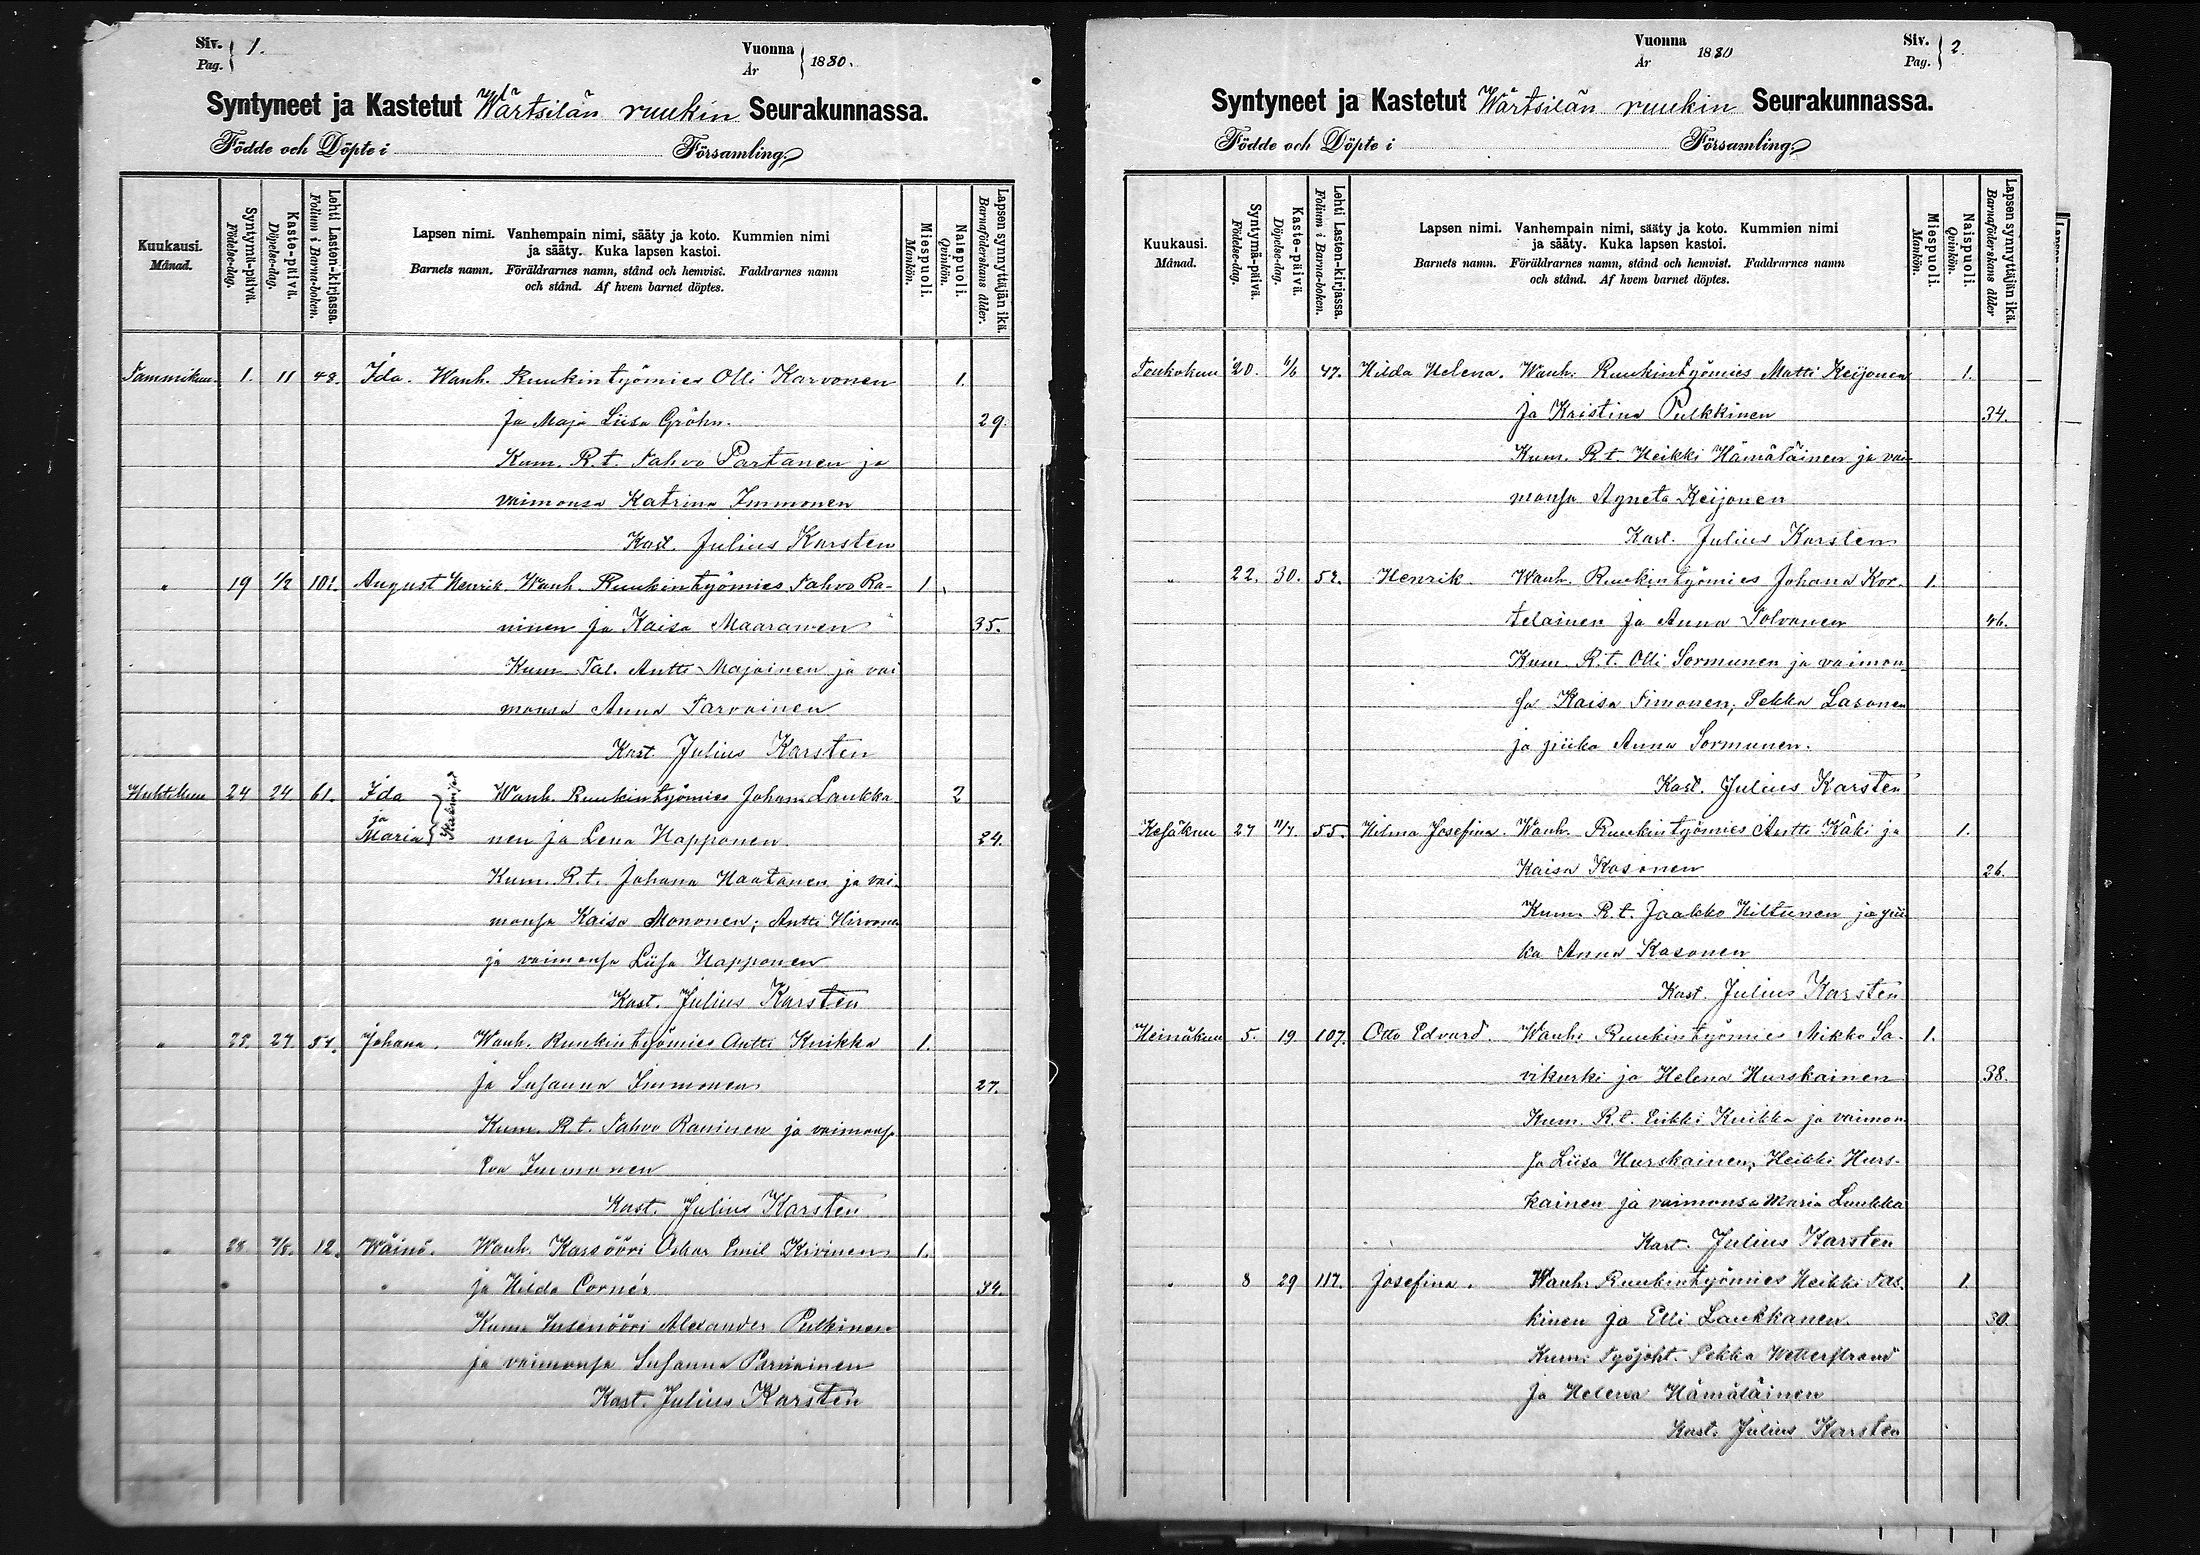 Siv. 1.
Pag.
Vuonna 1880.
År
Syntyneet ja Kastetut Wärtsilän ruukin Seurakunnassa.
Födde och Döpte i Församling.
Kuukausi.
Månad.
Syntymä-päivä.
Födelse-dag.
Kaste-päivä.
Döpelse-dag.
Lehti Lasten-kirjassa.
Folium i Barna-boken.
Lapsen nimi. Vanhempain nimi, sääty ja koto. Kummien nimi
ja sääty. Kuka lapsen kastoi.
Barnets namn. Föräldrarnes namn, stånd och hemvist. Faddrarnes namn
och stånd. Af hvem barnet döptes.
Miespuoli.
Mankön.
Naispuoli.
Qvinkön.
Lapsen synnyttäjän ikä.
Barnaföderskans ålder.
Tammikuu. 1. 11 48. Ida. Wanh. Ruukintyömies Olli Karvonen 1.
ja Maja Liisa Gröhn. 29.
Kum. R.t. Tahvo Partanen ja
vaimonsa Katrina Immonen
Kast. Julius Karsten
" 19 1/2 101. August Henrik. Wanh. Ruukintyömies Tahvo Ra- 1.
ninen ja Kaisa Maaranen 35.
Kum. Tal. Antti Majoinen ja vai
monsa Anna Tarvainen
Kast Julius Karsten
Huhtikuu 24 24 61. Ida Wanh. Ruukintyömies Johan Laukka 2
ja
Maria nen ja Lena Happonen 24.
Kum. R.t. Johana Haatanen ja vai-
monsa Kaisa Mononen; Antti Hirvonen
ja vaimonsa Liisa Happonen
Kast. Julius Karsten
" 27 54. Johana. Wanh. Ruukintyömies Antti Knikka 1.
ja Susanna Immonen 27.
Kum. R.t. Tahvo Raninen ja vaimonsa
Eva Immonen
Kast. Julius Karsten
" 28 12. Wäinö. Wanh. Kassööri Oskar Emil Kivinen 1.
ja Hilda Cornér 34.
Kum. Insenööri Alexander Pulkinen
ja vaimonsa Susanna Parviainen
Kast. Julius Karsten
Vuonna 1880
År
Siv. 2.
Pag.
Syntyneet ja Kastetut Wärtsilän ruukin Seurakunnassa.
Födde och Döpte i Församling.
Kuukausi.
Månad.
Syntymä-päivä.
Födelse-dag.
Kaste-päivä.
Döpelse-dag.
Lehti Lasten-kirjassa.
Folium i Barna-boken.
Lapsen nimi. Vanhempain nimi, sääty ja koto. Kummien nimi
ja sääty. Kuka lapsen kastoi.
Barnets namn. Föräldrarnes namn, stånd och hemvist. Faddrarnes namn
och stånd. Af hvem barnet döptes.
Miespuoli.
Mankön.
Naispuoli.
Qvinkön.
Lapsen synnyttäjän ikä.
Barnaföderskans ålder
Toukokuu 20. 47. Hilda Helena. Wanh. Ruukintyömies Matti Keijonen 1.
ja Kristina Pulkkinen 34.
Kum. R.t. Heikki Hämäläinen ja vai
monsa Agneta Keijonen
Kast. Julius Karsten
" 22. 30. 52. Henrik. Wanh. Ruukintyömies Johana Kor- 1.
telainen ja Anna Tolvanen 46.
Kum. R.t. Olli Sormunen ja vaimon
sa Kaisa Timonen; Pekka Lasonen
ja piika Anna Sormunen.
Kast. Julius Karsten
Kesäkuu 27 11/7 55. Hilma Josefina. Wanh. Ruukintyömies Antti Käki ja 1.
Kaisa Kasonen 26.
Kum. R.t. Jaakko Hiltunen ja pii
ka Anna Kasonen
Kast. Julius Karsten
Heinäkuu 5. 19 107. Otto Edvard. Wanh. Ruukintyömies Mikko Sa- 1.
vikurki ja Helena Hurskainen 38.
Kum. R.t. Erikki Knikka ja vaimon
sa Liisa Hurskainen, Heikki Hurs-
kainen ja vaimonsa Maria Luukka
Kast. Julius Karsten
" 8 29 117. Josefina. Wanh. Ruukintyömies Heikki Tas- 1.
kinen ja Elli Laukkanen. 30.
Kum: Työjoht. Pekka Wetterstrand
ja Helena Hämäläinen
Kast. Julius Karsten